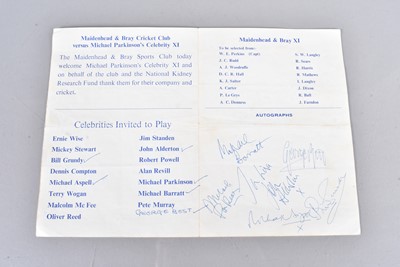 Maidenhead & Bray Cricket Club
versus Michael Parkinson's Celebrity XI
The Maidenhead & Bray Sports Club today
welcome Michael Parkinson's Celebrity XI and
on behalf of the club and the National Kidney
Research Fund thank them for their company and
cricket.
Celebrities Invited to Play
Ernie Wise
Jim Standen
Mickey Stewart
John Alderton
Bill Grundy
Robert Powell
Dennis Compton
Alan Revill
Michael Aspell
Michael Parkinson
Terry Wogan
Michael Barratt
Malcolm Mc Fee
Pete Murray
Oliver Reed
GEORGE BEST
Maidenhead & Bray XI
To be selected from:
(Capt)
S. W. Langley
J. C. Rudd
R. Sears
R. Harris
D. C. R. Hall
R. Mathews
K. J. Sutter
J. Langley
A. Carter
J. Dixon
P. Le Grys
R. Ball
J. Farndon
AUTOGRAPHS
Michael
Barratt